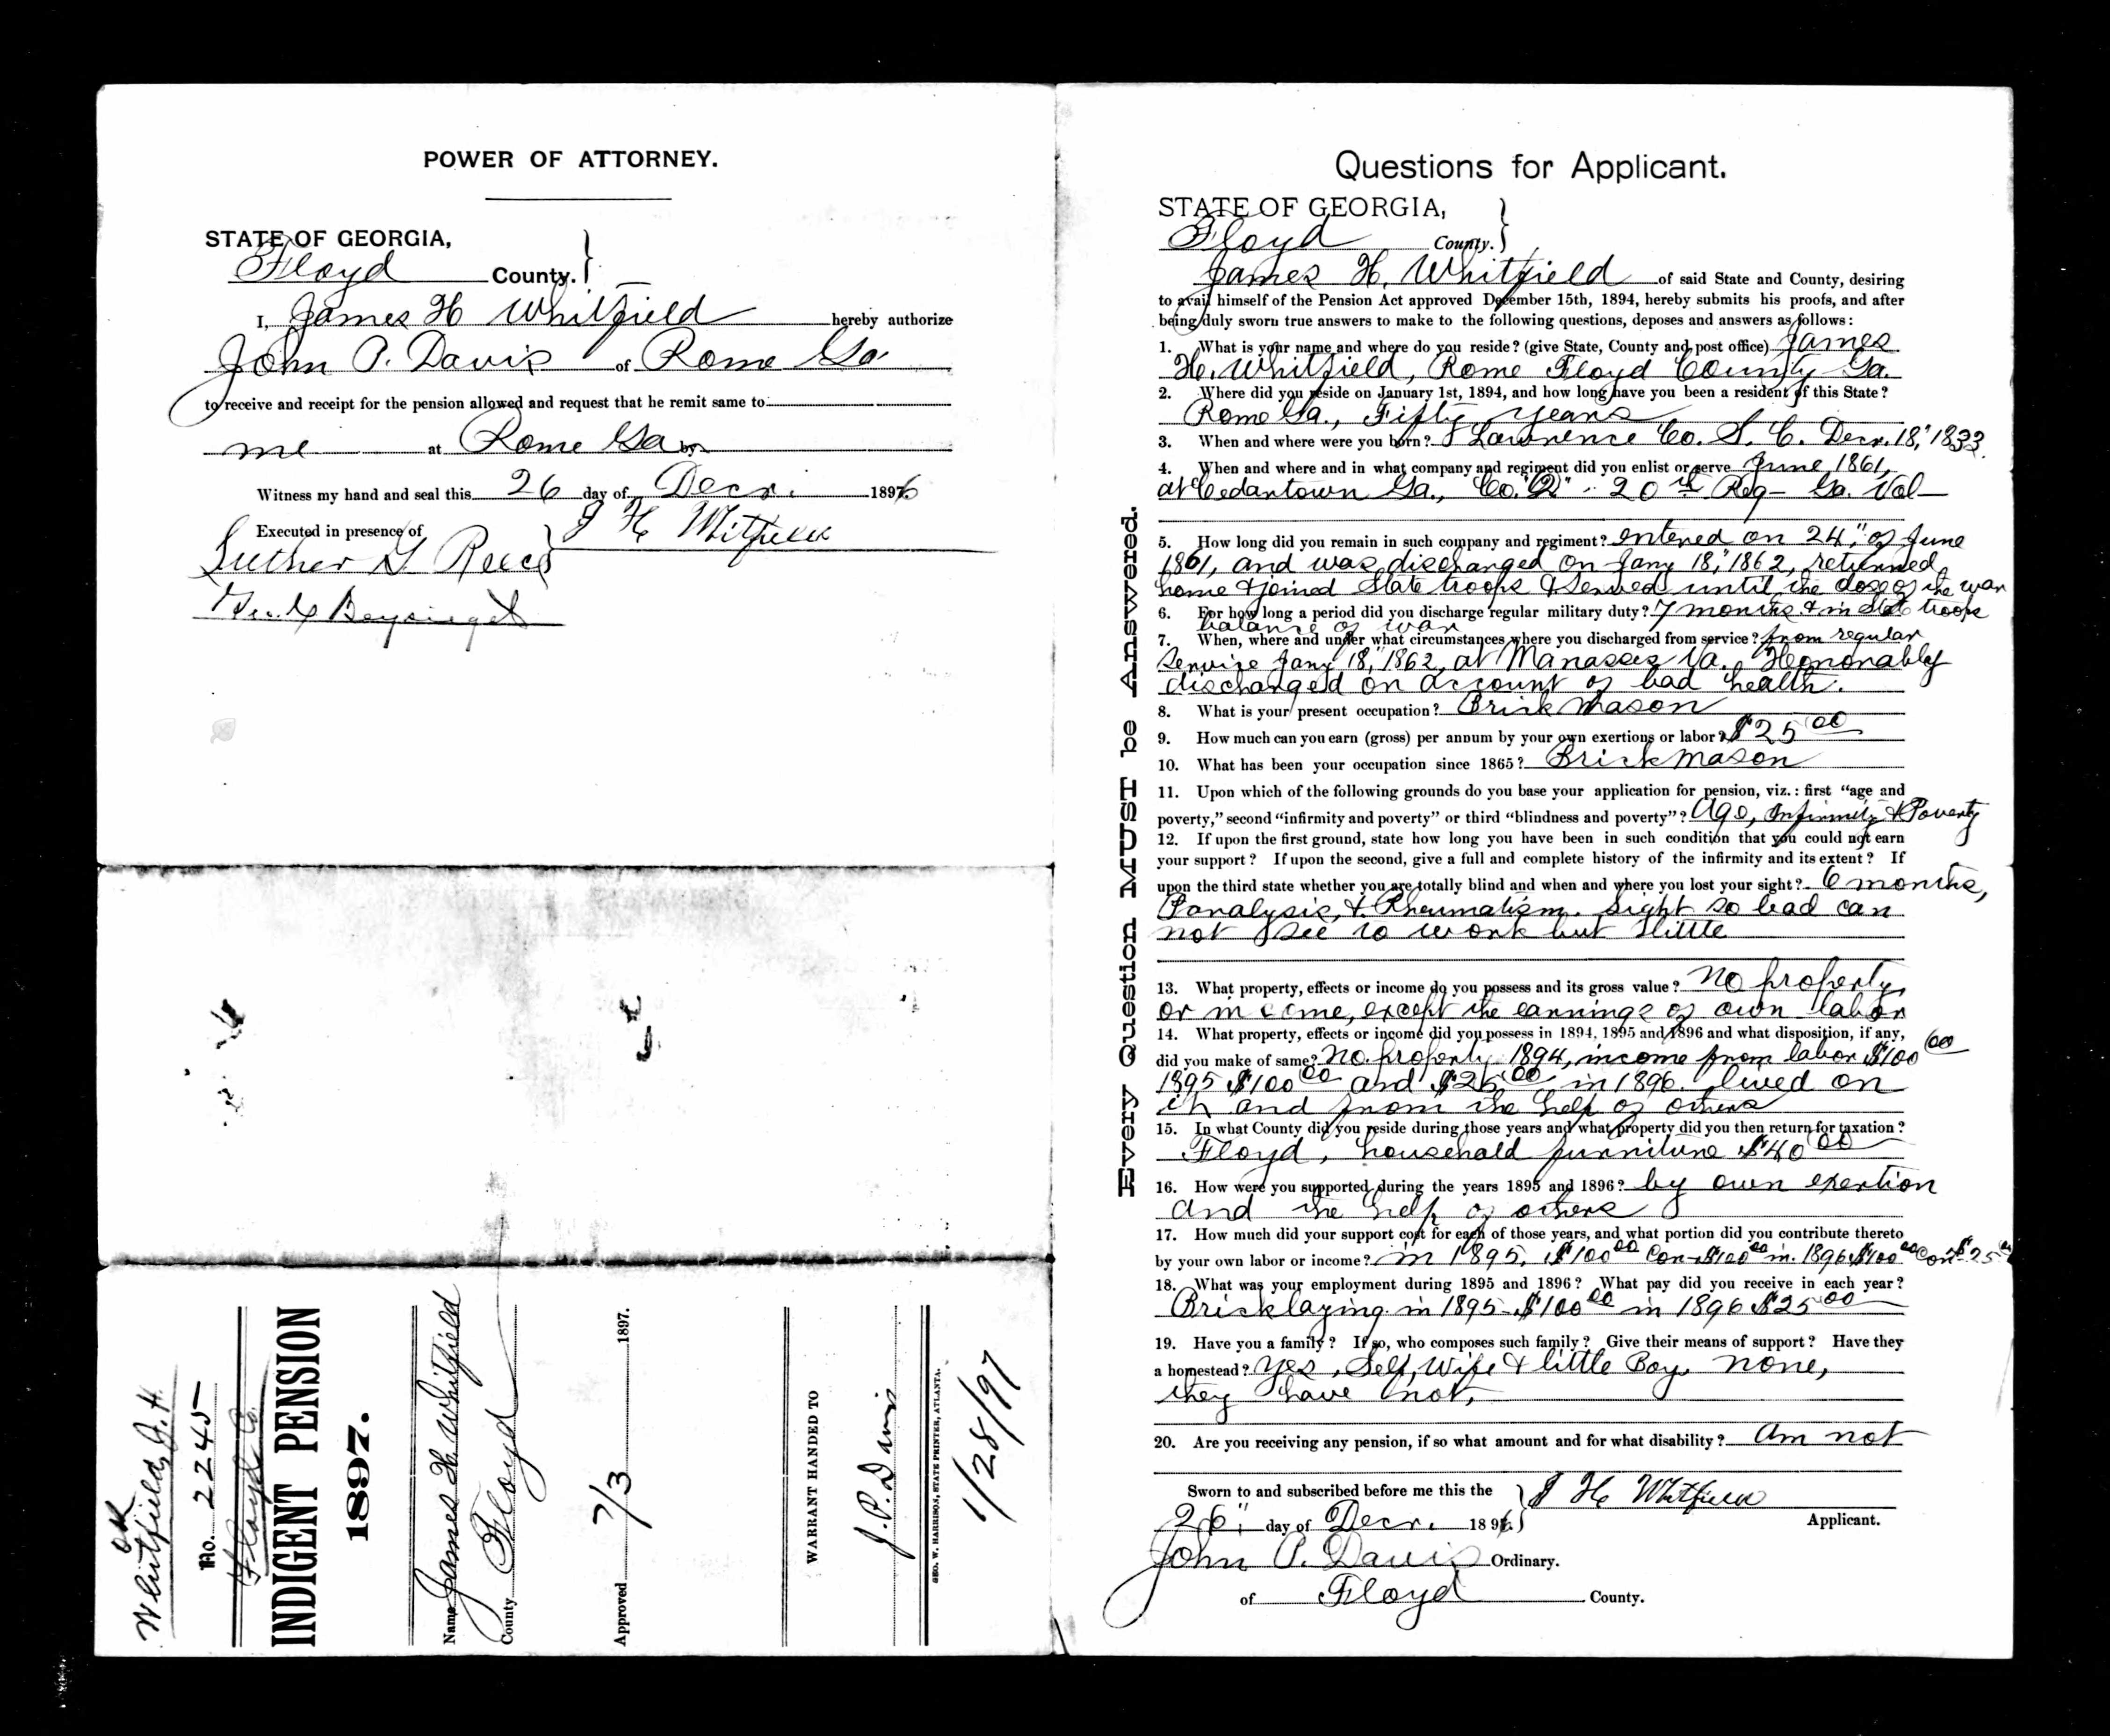 POWER OF ATTORNEY.
STATE OF GEORGIA,
Floyd County. }
I, James H Whitfield hereby authorize
John P. Davis of Rome Ga
to receive and receipt for the pension allowed and request that he remit same to
me at Rome Ga by
Witness my hand and seal this 26 day of Decr. 1896
Executed in presence of } J H Whitfield
Luther G. Reece
OK
Whitfield, J. H.
No. 2245
Floyd Co.
INDIGENT PENSION
1897.
Name James H. Whitfield
County Floyd
Approved 7/3 1897.
WARRANT HANDED TO
J. P. Davis
GEO. W. HARRISON, STATE PRINTER, ATLANTA.
1/28/97
Every Question MUST be Answered.
Questions for Applicant.
STATE OF GEORGIA,
Floyd County. }
James H. Whitfield of said State and County, desiring
to avail himself of the Pension Act approved December 15th, 1894, hereby submits his proofs, and after
being duly sworn true answers to make to the following questions, deposes and answers as follows:
1. What is your name and where do you reside? (give State, County and post office) James
H. Whitfield, Rome Floyd County Ga.
2. Where did you reside on January 1st, 1894, and how long have you been a resident of this State?
Rome Ga., Fifty years
3. When and where were you born? Lawrence Co. S. C. Decr. 18," 1833.
4. When and where and in what company and regiment did you enlist or serve June, 1861,
at Cedartown Ga., Co. " 20th Reg - Ga. Vol -
5. How long did you remain in such company and regiment? entered on 24," of June
1861, and was discharged on Jany 18," 1862, returned
home & joined State troops & served until the close of the war
6. For how long a period did you discharge regular military duty? 7 months & in State troops
balance of war
7. When, where and under what circumstances where you discharged from service? from regular
service Jany 18," 1862, at Manasses Va. Honorably
discharged on account of bad health.
8. What is your present occupation? Brick mason
9. How much can you earn (gross) per annum by your own exertions or labor? $25 00
10. What has been your occupation since 1865? Brick mason
11. Upon which of the following grounds do you base your application for pension, viz.: first "age and
poverty," second "infirmity and poverty" or third "blindness and poverty"? Age, Infirmity & Poverty
12. If upon the first ground, state how long you have been in such condition that you could not earn
your support? If upon the second, give a full and complete history of the infirmity and its extent? If
upon the third state whether you are totally blind and when and where you lost your sight? 6 months,
Paralysis, & Rheumatism. Sight so bad can
not see to work but little
13. What property, effects or income do you possess and its gross value? No property,
or income, except the earnings of own labor
14. What property, effects or income did you possess in 1894, 1895 and 1896 and what disposition, if any,
did you make of same? No property 1894, income from labor $100 00
1895 $100 00 and $25 00 in 1896. lived on
it and from the help of others
15. In what County did you reside during those years and what property did you then return for taxation?
Floyd, household furniture $40 00
16. How were you supported during the years 1895 and 1896? by own exertion
and the help of others
17. How much did your support cost for each of those years, and what portion did you contribute thereto
by your own labor or income? in 1895, $100 00 Con - $100 00 in 1896 $100 00 Con - $25 00
18. What was your employment during 1895 and 1896? What pay did you receive in each year?
Bricklaying in 1895 - $100 00 in 1896 $25 00
19. Have you a family? If so, who composes such family? Give their means of support? Have they
a homestead? Yes, Self, Wife & little Boy. none,
they have not,
20. Are you receiving any pension, if so what amount and for what disability? Am not
Sworn to and subscribed before me this the } J H Whitfield
26" day of Decr. 1896. } Applicant.
John P. Davis Ordinary.
of Floyd County.